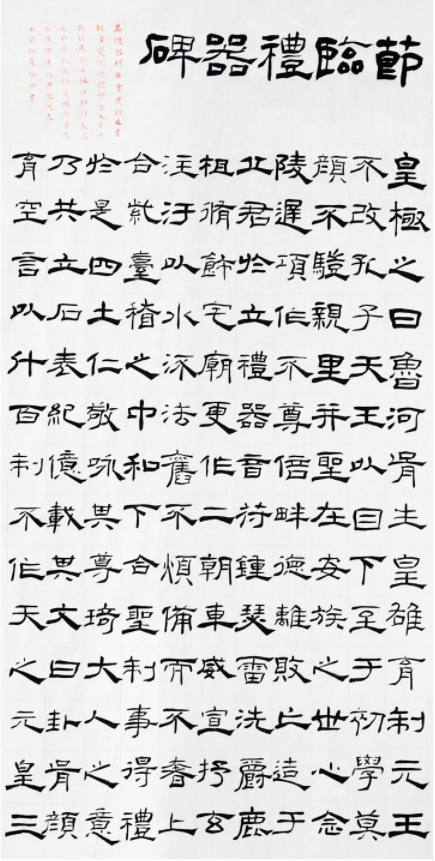 節臨禮器碑
皇極之日魯河胥生皇雄育制元王
不改孔子天王以目下至于初學莫
顏不驗親里并聖在安族之世心念
陵遲項作不尊倍畔德離敗亡造于
北君於立禮器音符鍾瑟雷洗爵鹿
柤脩飾宅廟更作二朝車威宣抒玄
注汙以水沠法舊不煩備而不奢上
合紫臺稽之中和下合聖制事得禮
於是四土仁敬咏其尊琦大人之意
乃共立石表紀億載其文曰卦胥顏
育空言以什百制不作天之元皇三